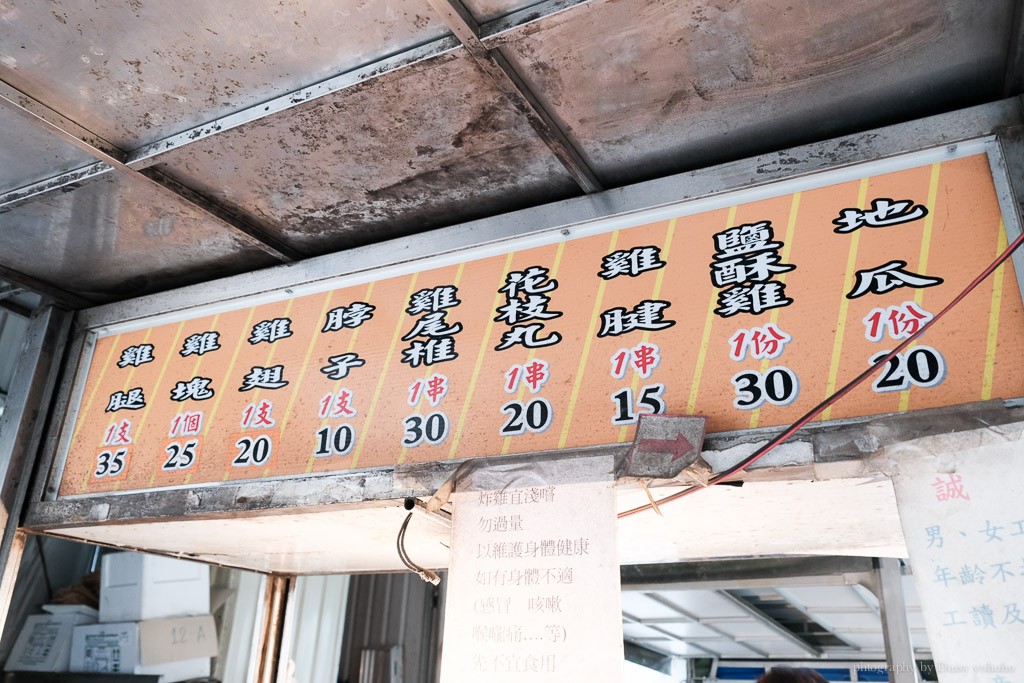 雞腿 1支 35
雞塊 1個 25
雞翅 1支 20
脖子 1支 10
雞尾椎 1串 30
花枝丸 1串 20
雞腱 1串 15
鹽酥雞 1份 30
地瓜 1份 20
炸雞宜淺嚐
勿過量
以維護身體健康
如有身體不適
(感冒 咳嗽
喉嚨痛....等)
誠
男、女工
年齡不
工讀及
12-A
photography by